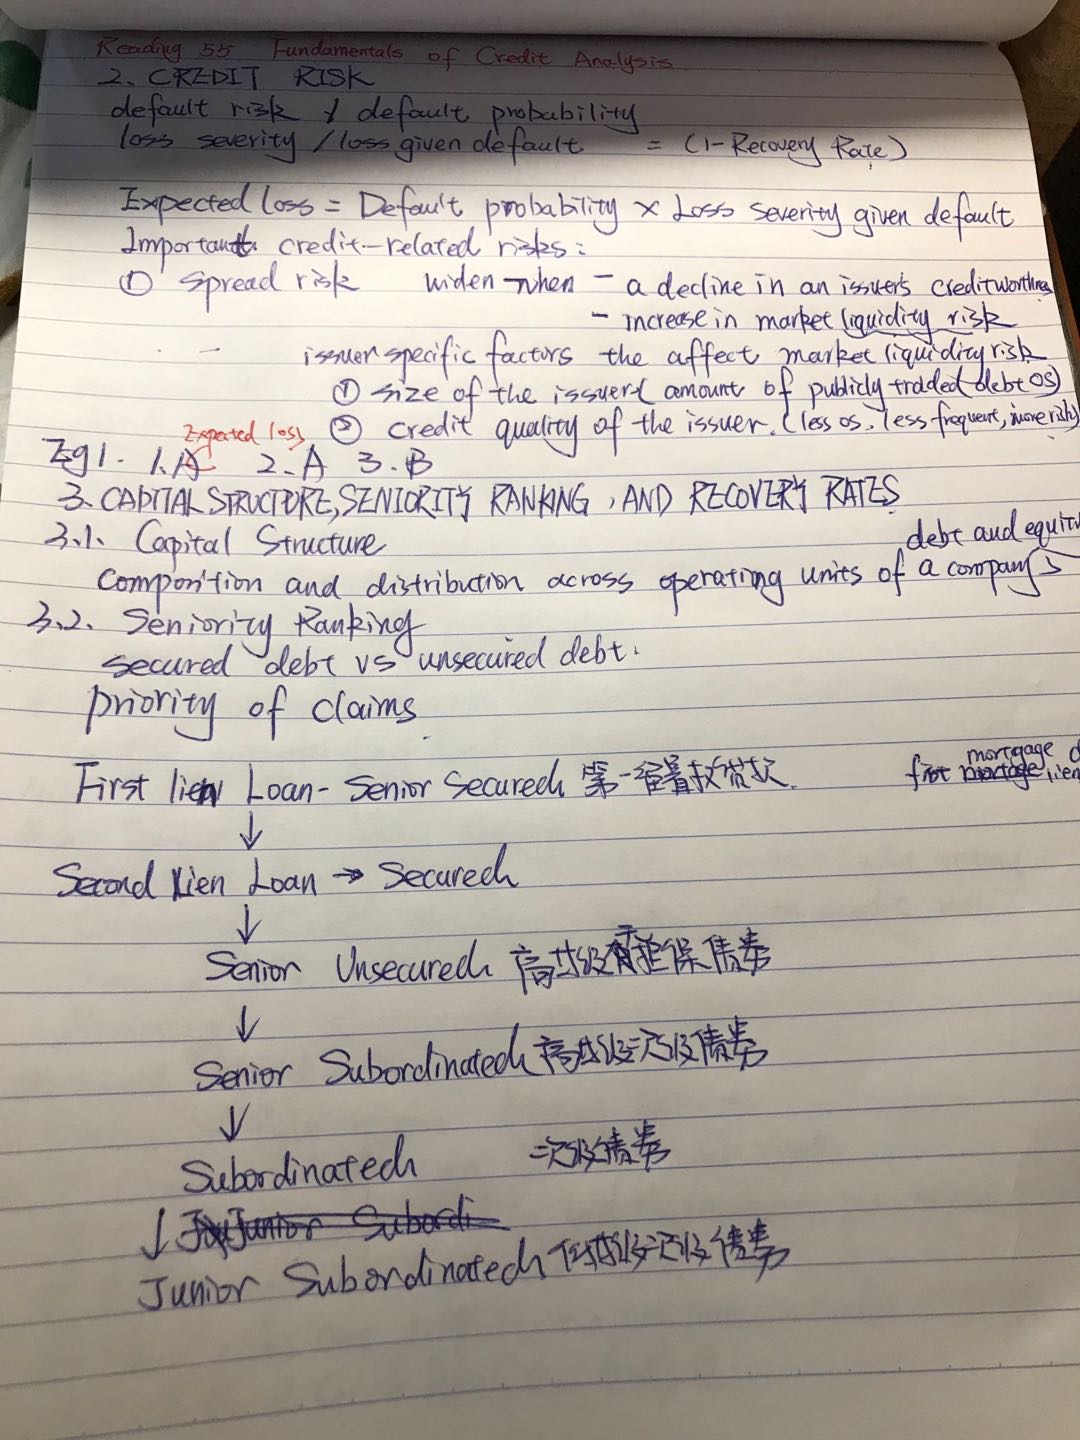 Reading 55 Fundamentals of Credit Analysis
2. CREDIT RISK
default risk / default probability
loss severity / loss given default = (1-Recovery Rate)
Expected loss = Default probability × Loss severity given default
Important credit-related risks:
① Spread risk widen when - a decline in an issuer's creditworthiness
- increase in market liquidity risk
issuer specific factors the affect market liquidity risk
① size of the issuer (amount of publicly traded debt OS)
② credit quality of the issuer. (less os, less frequent, more risk)
Expected loss
Eg1. 1.A 2.A 3.B
3. CAPITAL STRUCTURE, SENIORITY RANKING, AND RECOVERY RATES
3.1. Capital Structure
debt and equity
composition and distribution across operating units of a company's
3.2. Seniority Ranking
secured debt vs unsecured debt.
priority of claims
mortgage
First lien Loan - Senior Secured 第一留置权贷款. first lien
↓
Second Lien Loan → Secured
↓
Senior Unsecured 高等级无担保债券
↓
Senior Subordinated 高等级次级债券
↓
Subordinated 次级债券
↓ Junior Subordi
Junior Subordinated 低等级次级债券